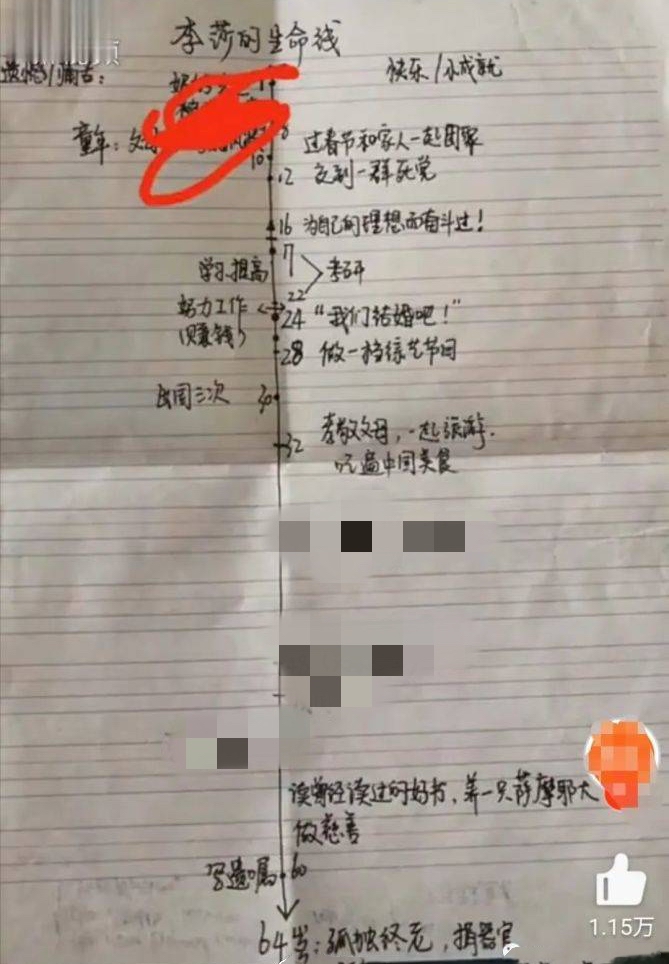 李莎的生命线
遗憾/痛苦：
快乐/小成就
童年：父母
8 过春节和家人一起团聚
10
12 交到一群死党
16 为自己的理想而奋斗过！
17
学习、提高
考研
22
努力工作
(赚钱)
24 “我们结婚吧！”
28 做一档综艺节目
出国三次 30
32 孝敬父母，一起旅游.
吃遍中国美食
读曾经读过的好书、养一只萨摩耶犬
做慈善
写遗嘱 60
64岁：孤独终老，捐器官
1.15万